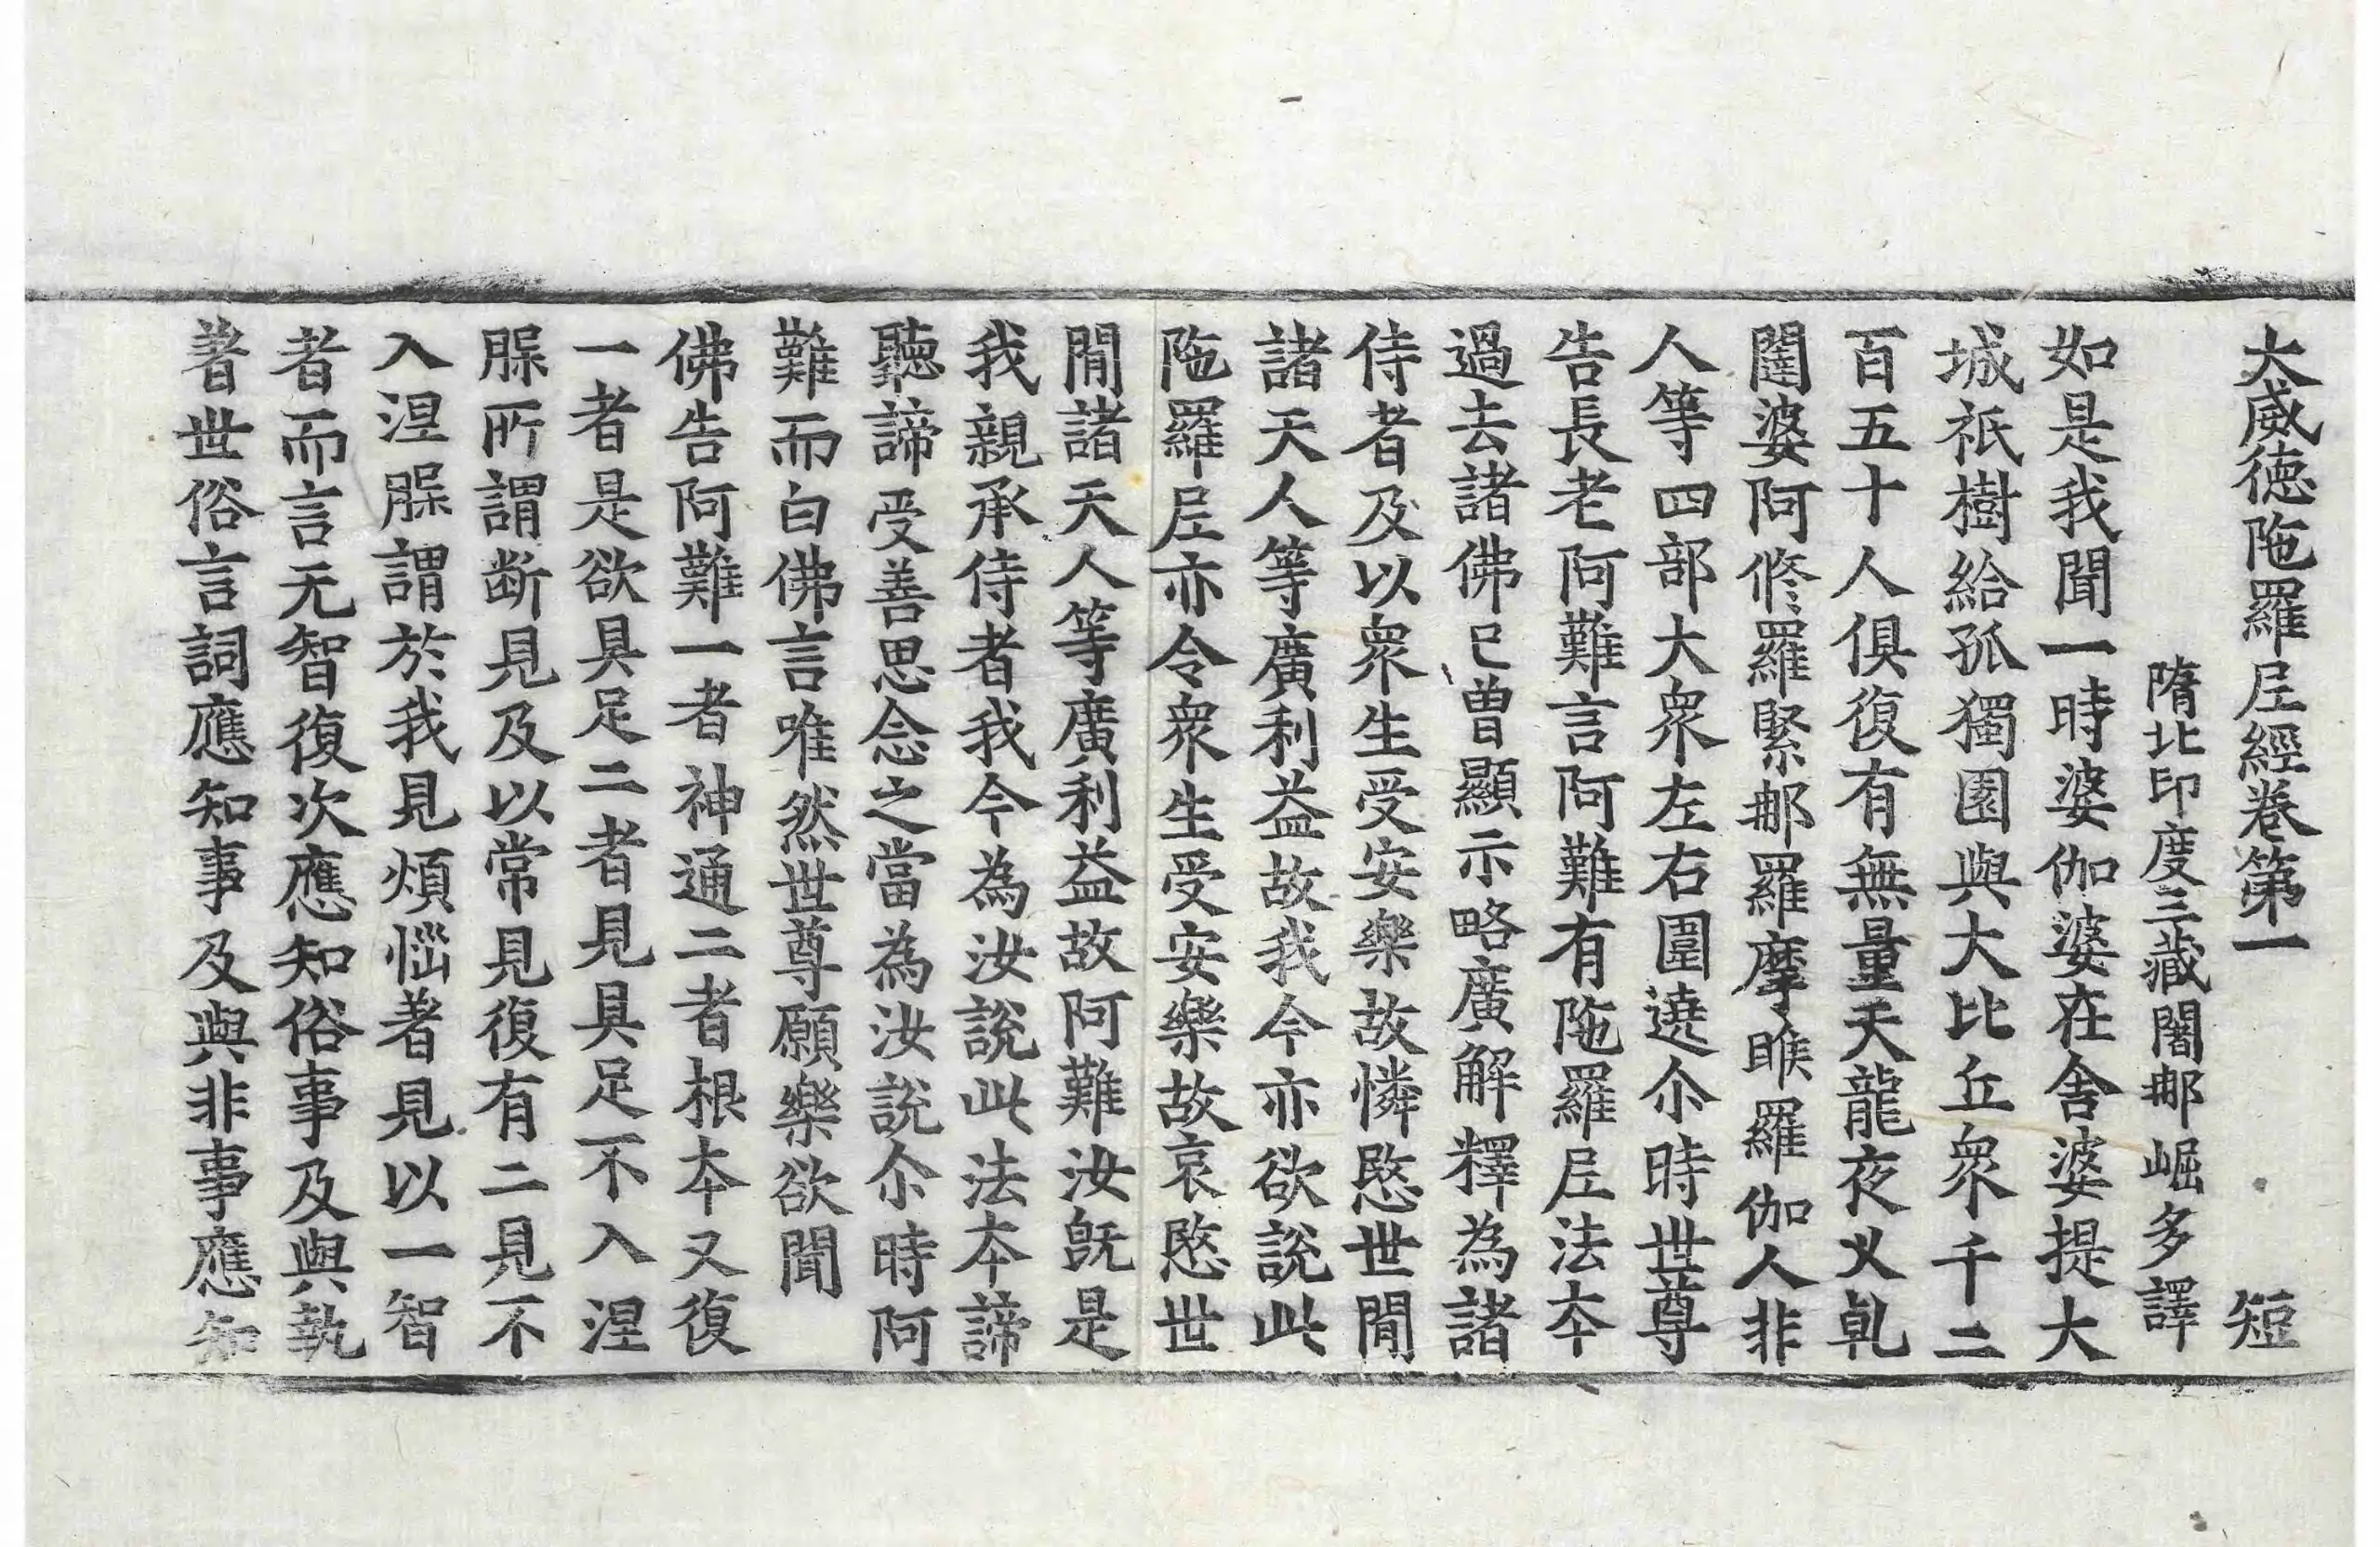 大威德陁羅𡰱經卷第一 短
隋北印度三藏闍𨙻崛多譯
如是我聞一時婆伽婆在舍婆提大
城祇樹給孤獨園與大比丘衆千二
百五十人俱復有無量天龍夜乂乹
闥婆阿修羅緊𨙻羅摩睺羅伽人非
人等四部大衆左右圍遶尒時世尊
告長老阿難言阿難有陁羅𡰱法夲
過去諸佛已曾顯示略廣解釋為諸
侍者及以衆生受安樂故憐愍世閒
諸天人等廣利益故我今亦欲說此
陁羅𡰱亦令衆生受安樂故哀愍世
閒諸天人等廣利益故阿難汝旣是
我親承侍者我今為汝說此法夲諦
聽諦受善思念之當為汝說尒時阿
難而白佛言唯然世尊願樂欲聞
佛告阿難一者神通二者根夲又復
一者是欲具足二者見具足不入涅
𦜮所謂斷見及以常見復有二見不
入涅𦜮謂於我見煩惱著見以一智
者而言无智復次應知俗事及與執
著世俗言詞應知事及與非事應知